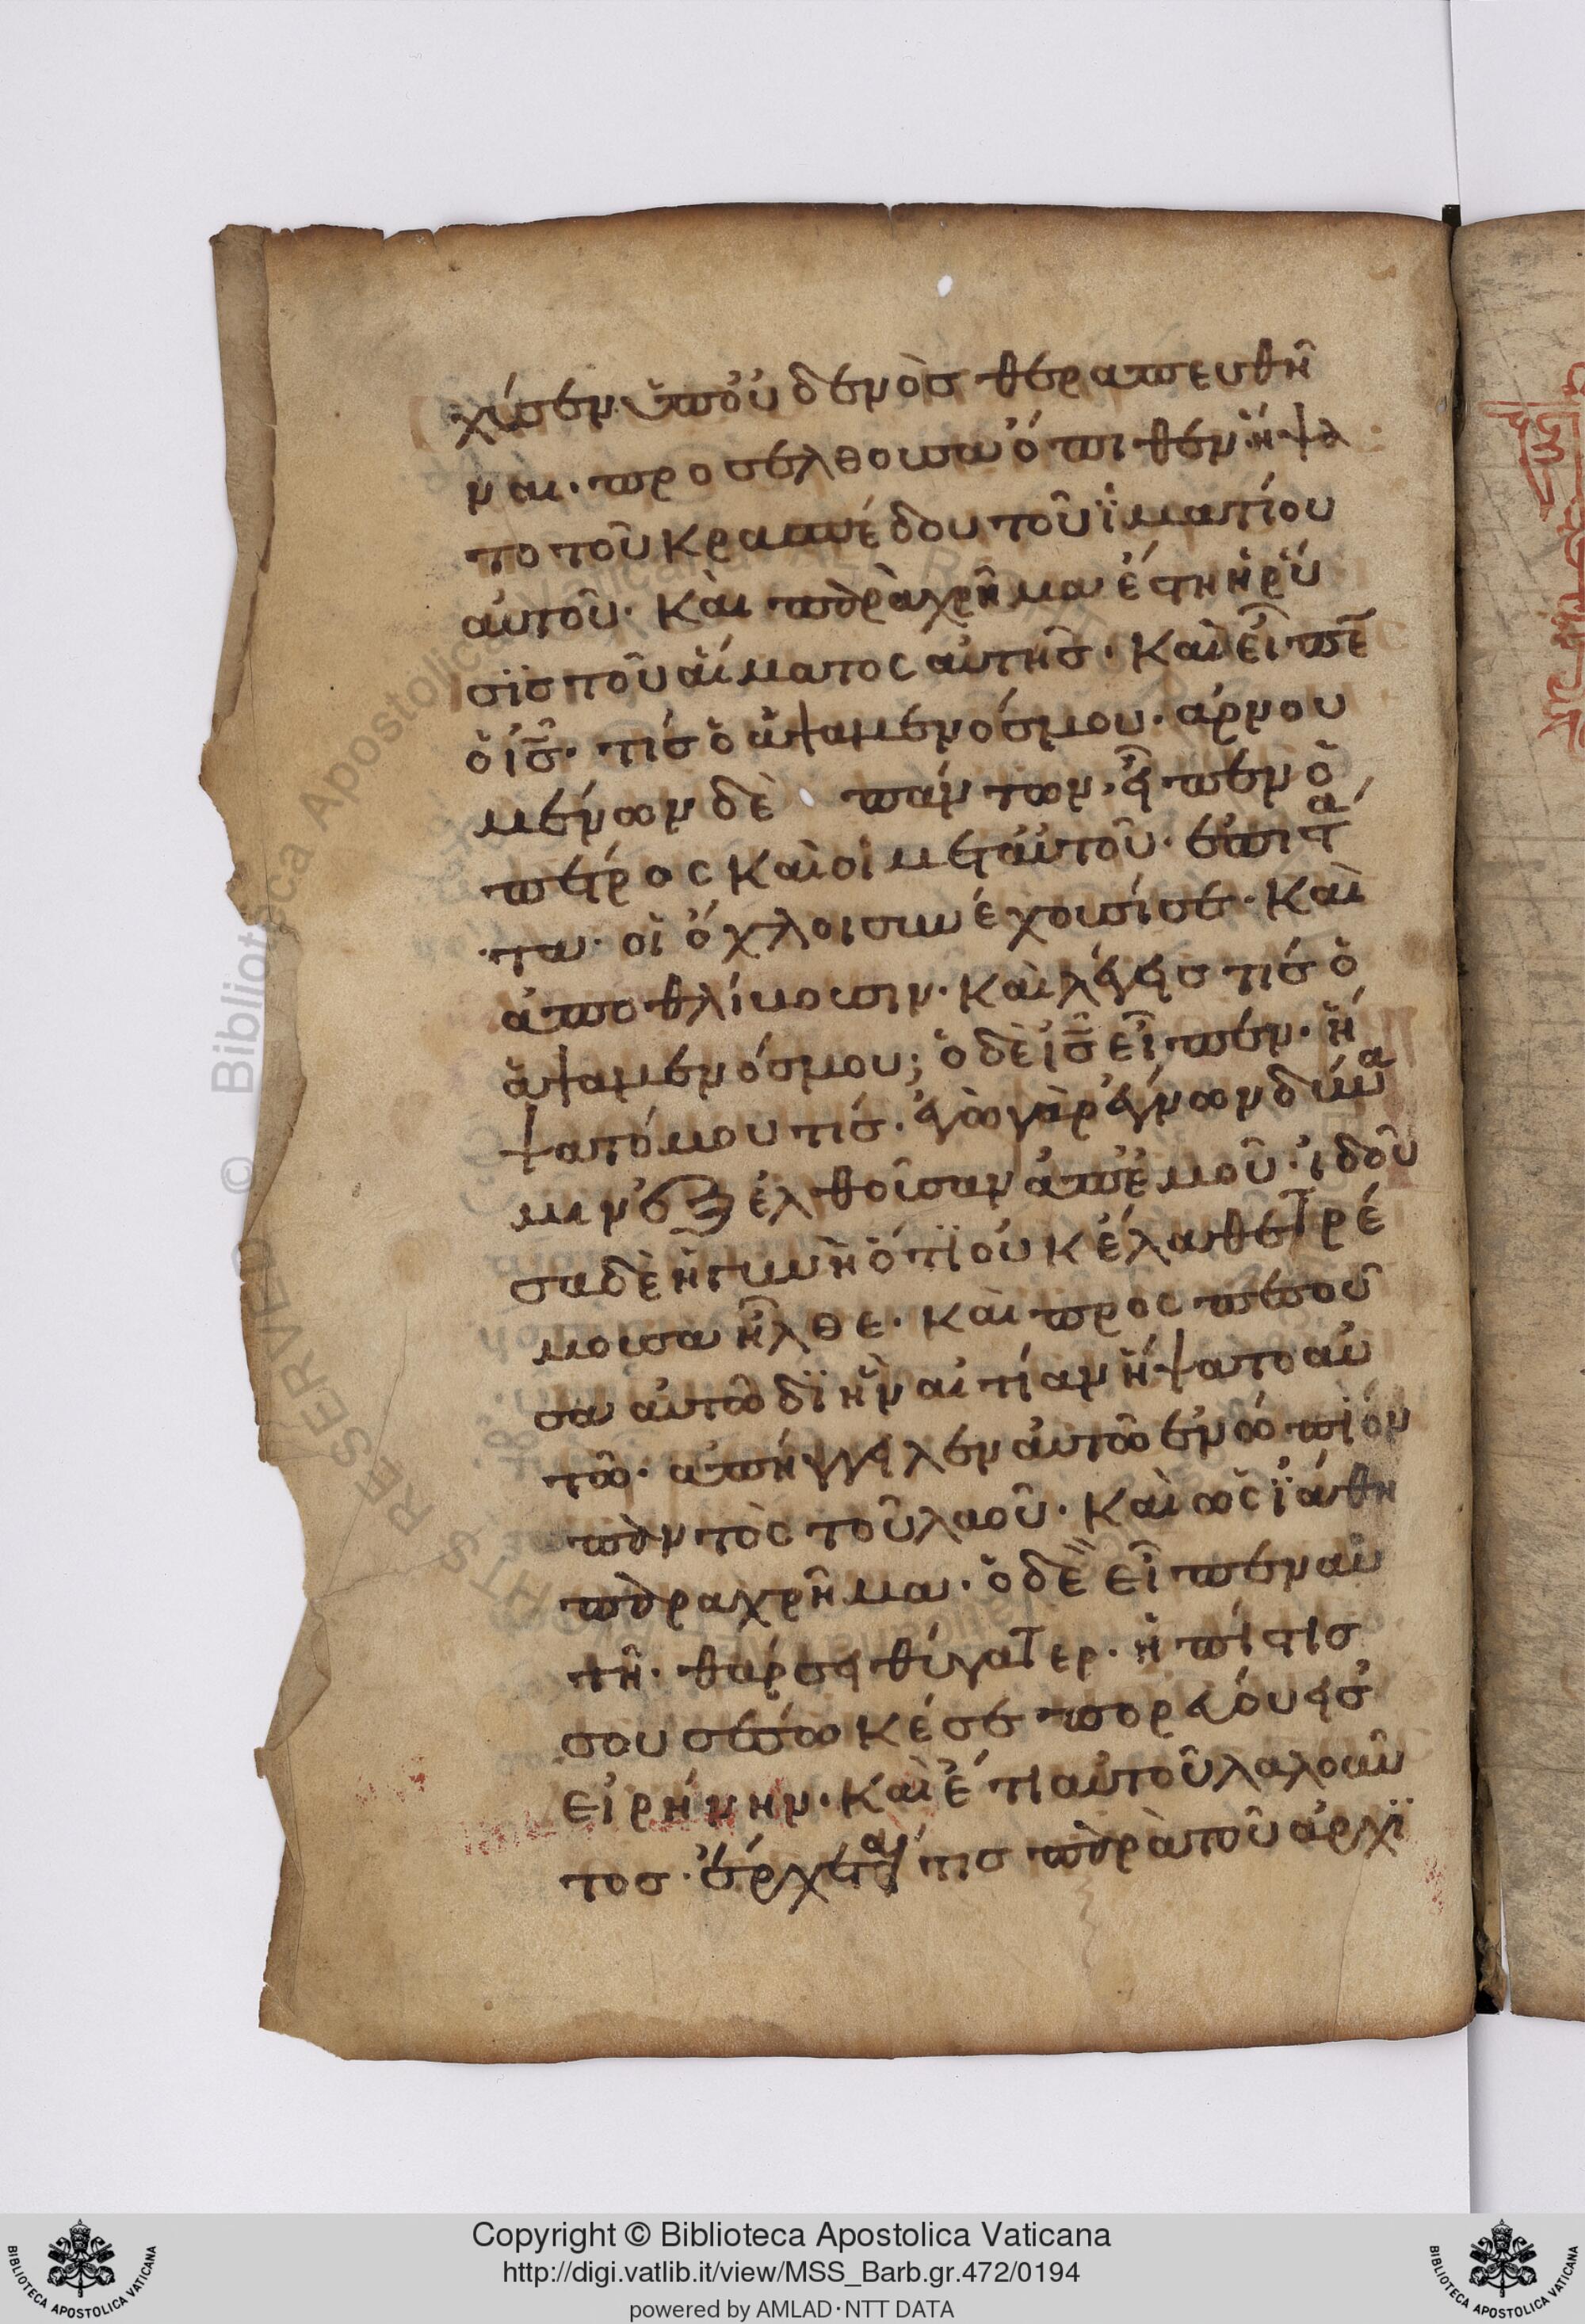 χύσεν ὑπ' οὐδενὸς θεραπευθῆ
ναι· προσελθοῦσα ὄπιθεν ἥψα
το τοῦ κρασπέδου τοῦ ἱματίου
αὐτοῦ· καὶ παραχρῆμα ἔστη ἡ ῥύ
σϊς τοῦ αἵματος αὐτῆς· καὶ εἶπε
ὁ ἰς̅· τίς ὁ ἁψάμενός μου· ἀρνου
μένων δὲ πάντων, εἶπεν ὁ
πέτρος καὶ οἱ μετ' αὐτοῦ· ἐπιστά
τα· οἱ ὄχλοι συνέχουσί σε· καὶ
ἀποθλίβουσιν· καὶ λέγεις τίς ὁ
ἁψάμενός μου; ὁ δὲ ἰς̅ εἶπεν· ἥ
ψατό μου τίς· ἐγὼ γὰρ ἔγνων δύνα
μιν ἐξελθοῦσαν ἀπ' ἐμοῦ· ἰδοῦ
σα δὲ ἡ γυνὴ ὅτι οὐκ ἔλαθε τρέ
μουσα ἦλθε· καὶ προσπεσοῦ
σα αὐτῶ δϊ ἣν αἰτίαν ἥψατο αὐ
τῶ· ἀπήγγειλεν αὐτῶ ἐνώπϊον
παντὸς τοῦ λαοῦ· καὶ ὡς ϊάθη
παραχρῆμα· ὁ δὲ εἶπεν αὐ
τῆ· θάρσει θύγατερ· ἡ πίστις
σου σέσωκέ σε πορεύου εἰς
εἰρήνην· καὶ ἔτι αὐτοῦ λαλοῦν
τος· ἔρχεταί τις παρὰ τοῦ ἀρχϊ
© Biblioteca Apostolica Vaticana
Copyright © Biblioteca Apostolica Vaticana
http://digi.vatlib.it/view/MSS_Barb.gr.472/0194
powered by AMLAD·NTT DATA
BIBLIOTECA APOSTOLICA VATICANA
BIBLIOTECA APOSTOLICA VATICANA